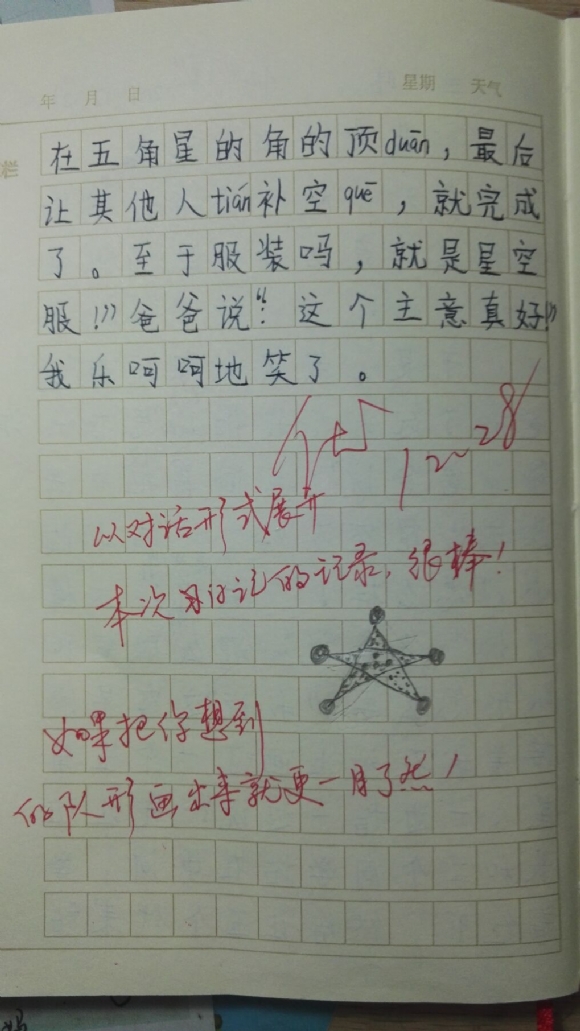 年 月 日 星期 天气
栏
在五角星的角的顶duān，最后
让其他人tián补空quē，就完成
了。至于服装吗，就是星空
服！”爸爸说：“这个主意真好！”
我乐呵呵地笑了。
12~28
以对话形式展开
本次日记的记录，很棒！
如果把你想到
的队形画出来就更一目了然！